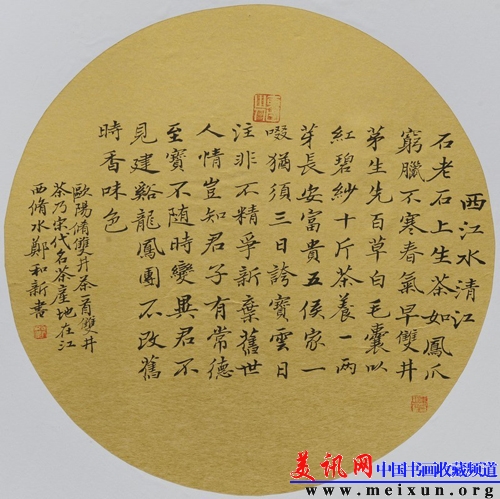 西江水清江
石老石上生茶如鳳爪
窮臘不寒春氣早雙井
茅生先百草白毛囊以
紅碧紗十斤茶養一兩
芽長安富貴五侯家一
啜猶須三日誇寶雲日
注非不精爭新棄舊世
人情豈知君子有常德
至寶不随時變異君不
見建谿龍鳳團不改舊
時香味色
歐陽脩雙井茶一首雙井
茶乃宋代名茶産地在江
西脩水鄭和新書
美讯网中国书画收藏频道
www.meixun.org